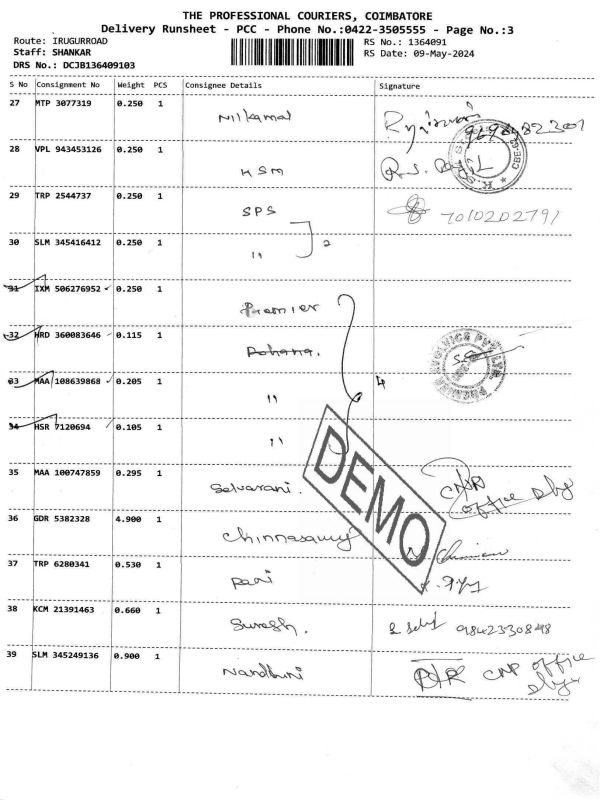 THE PROFESSIONAL COURIERS, COIMBATORE
Delivery Runsheet - PCC - Phone No.:0422-3505555 - Page No.:3
Route: IRUGURROAD
RS No.: 1364091
Staff: SHANKAR
RS Date: 09-May-2024
DRS No.: DCJB136409103
S No Consignment No Weight PCS Consignee Details Signature
27 MTP 3077319 0.250 1 Nilkamal
28 VPL 943453126 0.250 1 KSM
29 TRP 2544737 0.250 1 SPS 7010202791
30 SLM 345416412 0.250 1 " 2
31 IXM 506276952 0.250 1 Premier
32 HRD 360083646 0.115 1
33 MAA 108639868 0.205 1 " 4
34 HSR 7120694 0.105 1 "
35 MAA 100747859 0.295 1 Selvarani. office
36 GDR 5382328 4.900 1 Chinnasamy
37 TRP 6280341 0.530 1
38 KCM 21391463 0.660 1 Suresh. 9842330848
39 SLM 345249136 0.900 1 Nandhini CNP office
DEMO